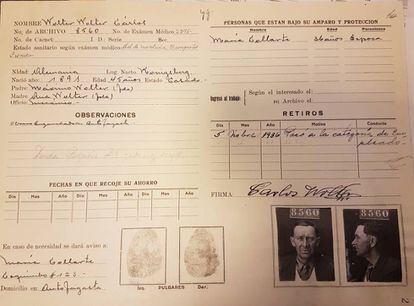 NOMBRE Wolter Wolter Carlos
No. de ARCHIVO 8560 No. de Exámen Médico
No. de Carnet I D. Serie Sec.
Estado sanitario según exámen médico
Ndad: Alemania Lug. Nacto
Nació año 1891 Edad 45 años Estado Casado
Padre Máximo Wolter
Madre Ana Wolter
Oficio
OBSERVACIONES
Antofagasta
FECHAS EN QUE RECOJE SU AHORRO
Día Mes Año Día Mes Año
En caso de necesidad se dará aviso a
María Collarte
Coquimbo # 123
Domicilio en Antofagasta
Izq. PULGARES Der.
PERSONAS QUE ESTAN BAJO SU AMPARO Y PROTECCION
NOMBRE Edad Parentesco
María Collarte 36 años Esposa
Ingresó al trabajo
Según el interesado el:
su Archivo el:
RETIROS
Día Mes Año Motivo Conducta
5 Nobre 1936 Pasó a la categoría de Em-
pleado
FIRMA: Carlos Wolter
8560 8560